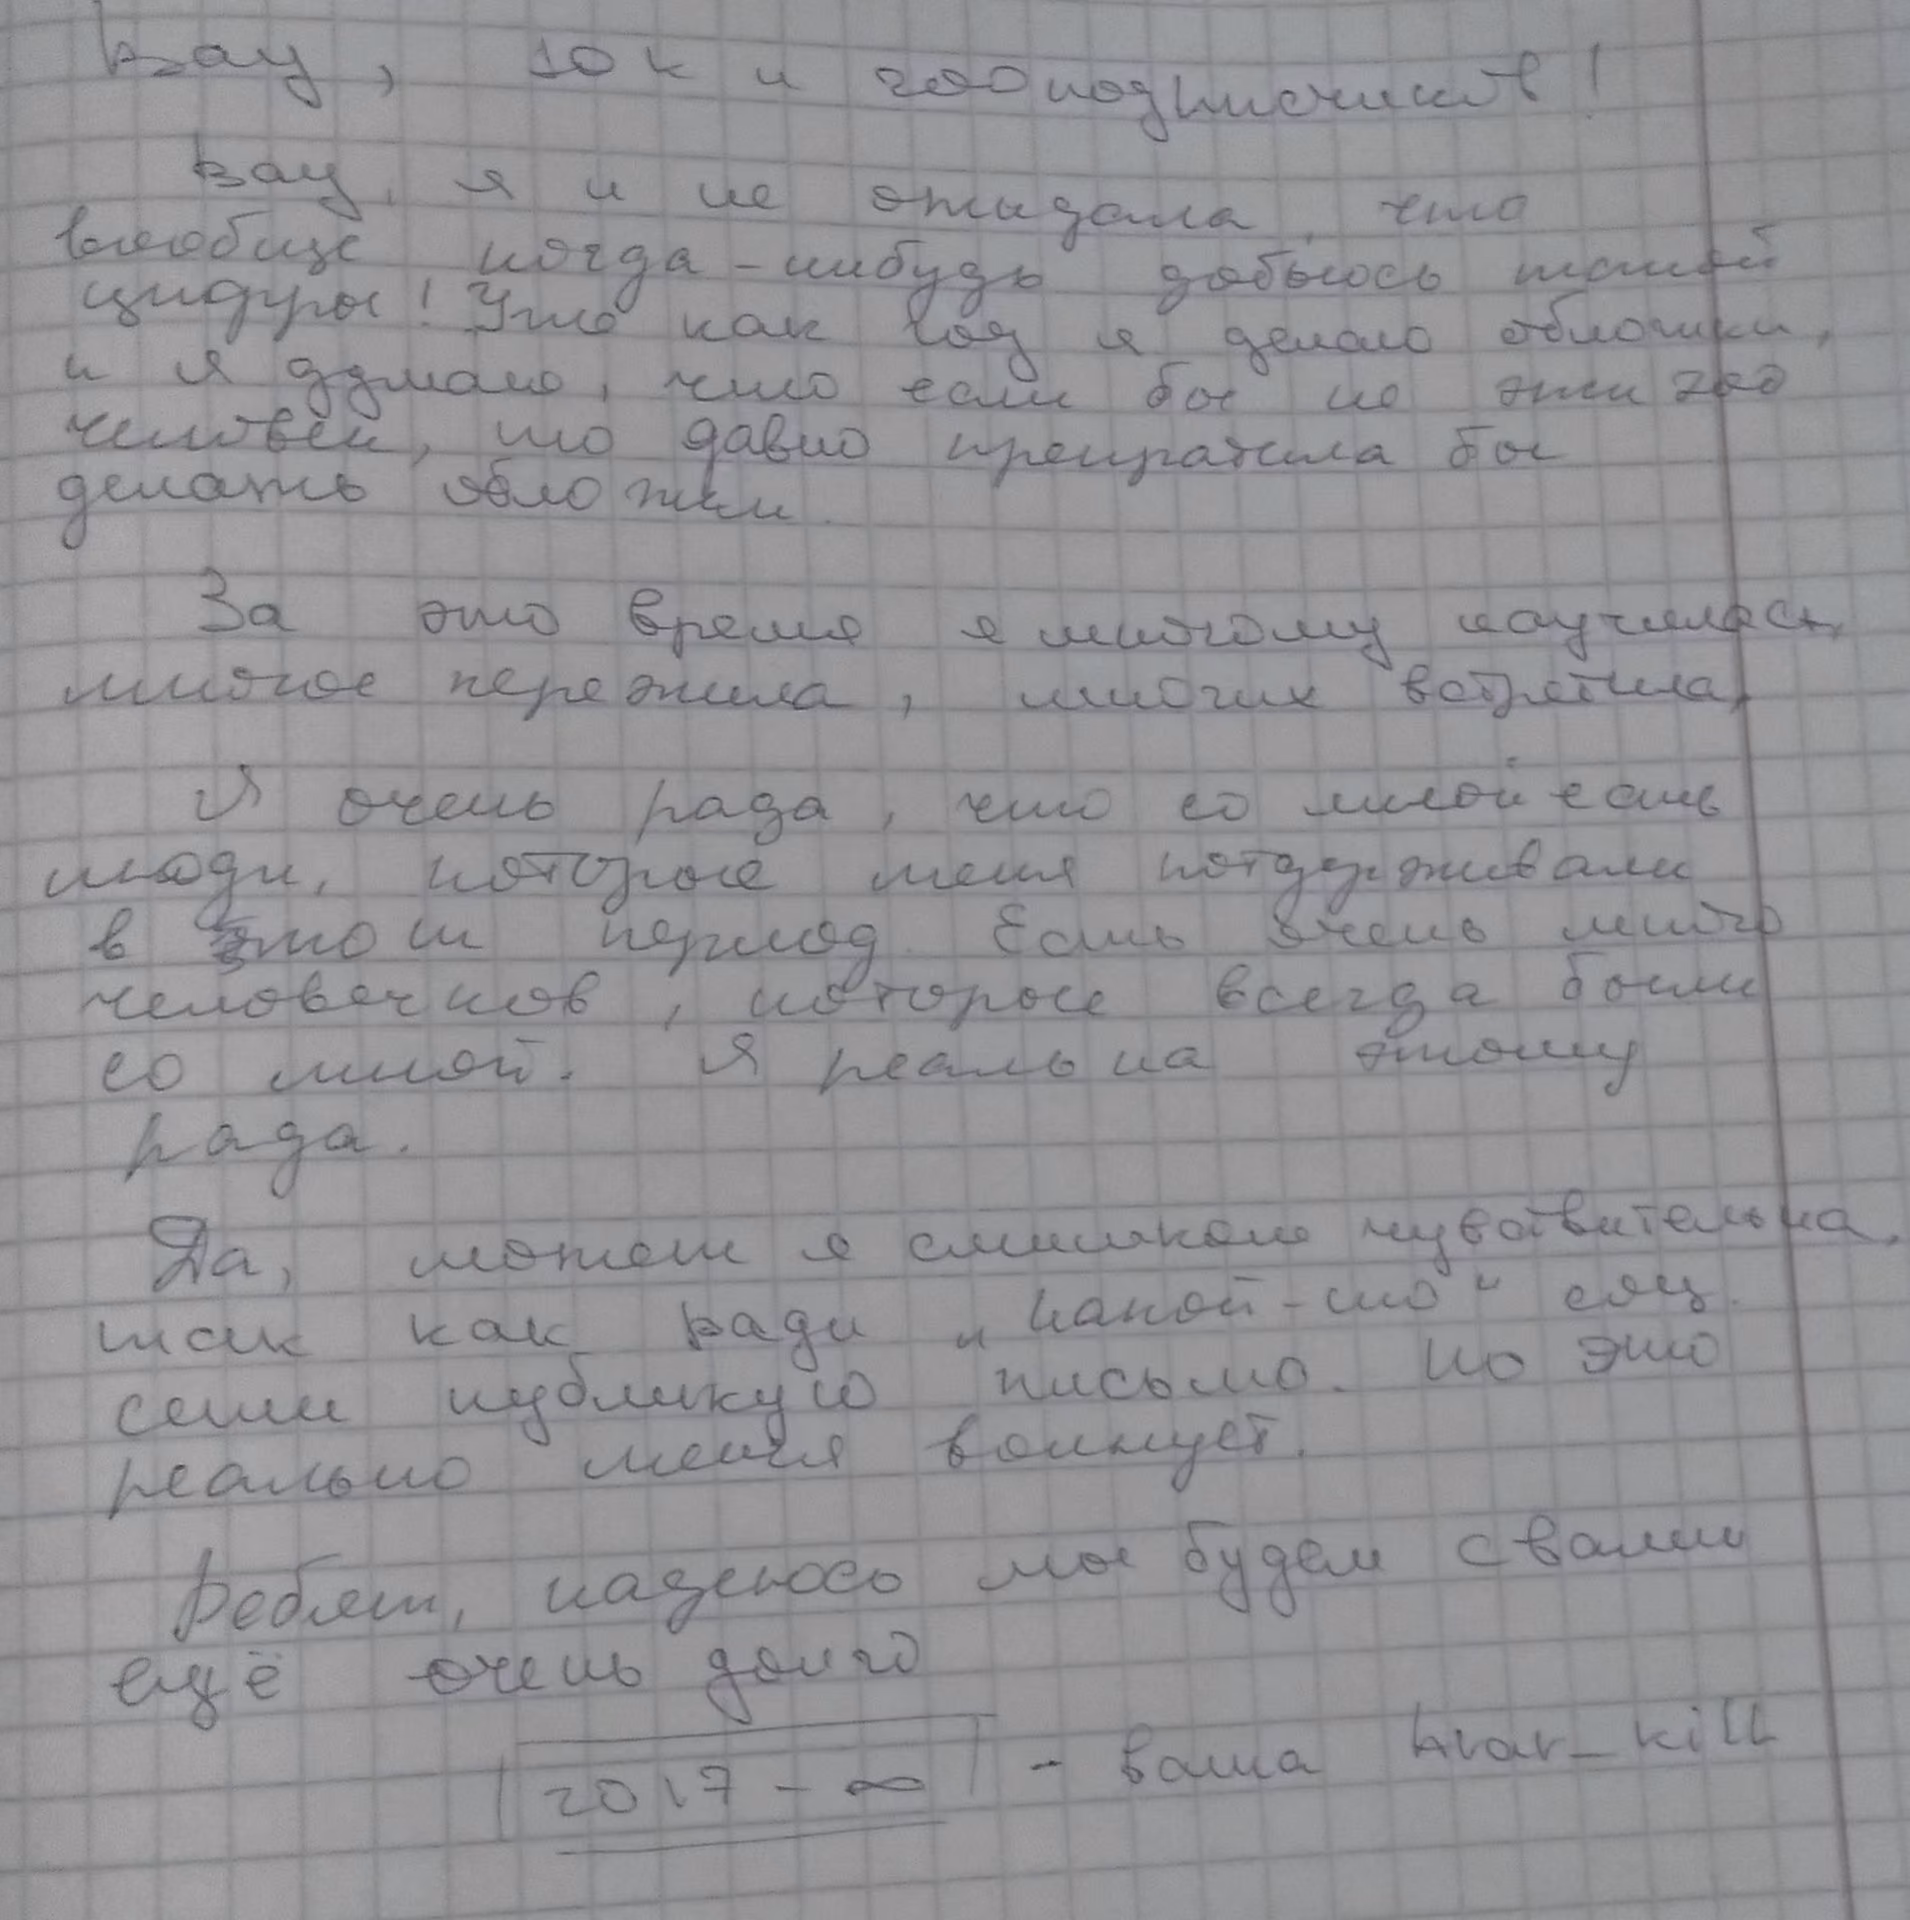 Вау, 10к и 200 подписчиков!
Вау, я и не ожидала, что
вообще когда-нибудь добьюсь такой
цифры! Уже как год я делаю обложки,
и я думаю, что если бы не эти 200
человек, то давно прекратила бы
делать обложки.
За это время я многому научилась,
многое пережила, многих встретила,
Я очень рада, что со мной есть
люди, которые меня потдерживали
в этот период. Есть очень много
человечков, которые всегда были
со мной. Я реальна этому
рада.
Да, может я слишком чувствительна,
так как ради "какой-то" соц.
сети публикую письмо. Но это
реально меня волнует.
Ребят, надеюсь мы будем с вами
ещё очень долго
2017 - ∞ - ваша kill